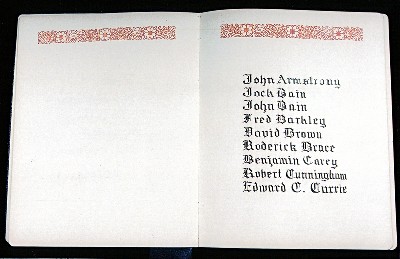 John Armstrong
Jock Bain
John Bain
Fred Barkley
David Brown
Roderick Bruce
Benjamin Carey
Robert Cunningham
Edward C. Currie